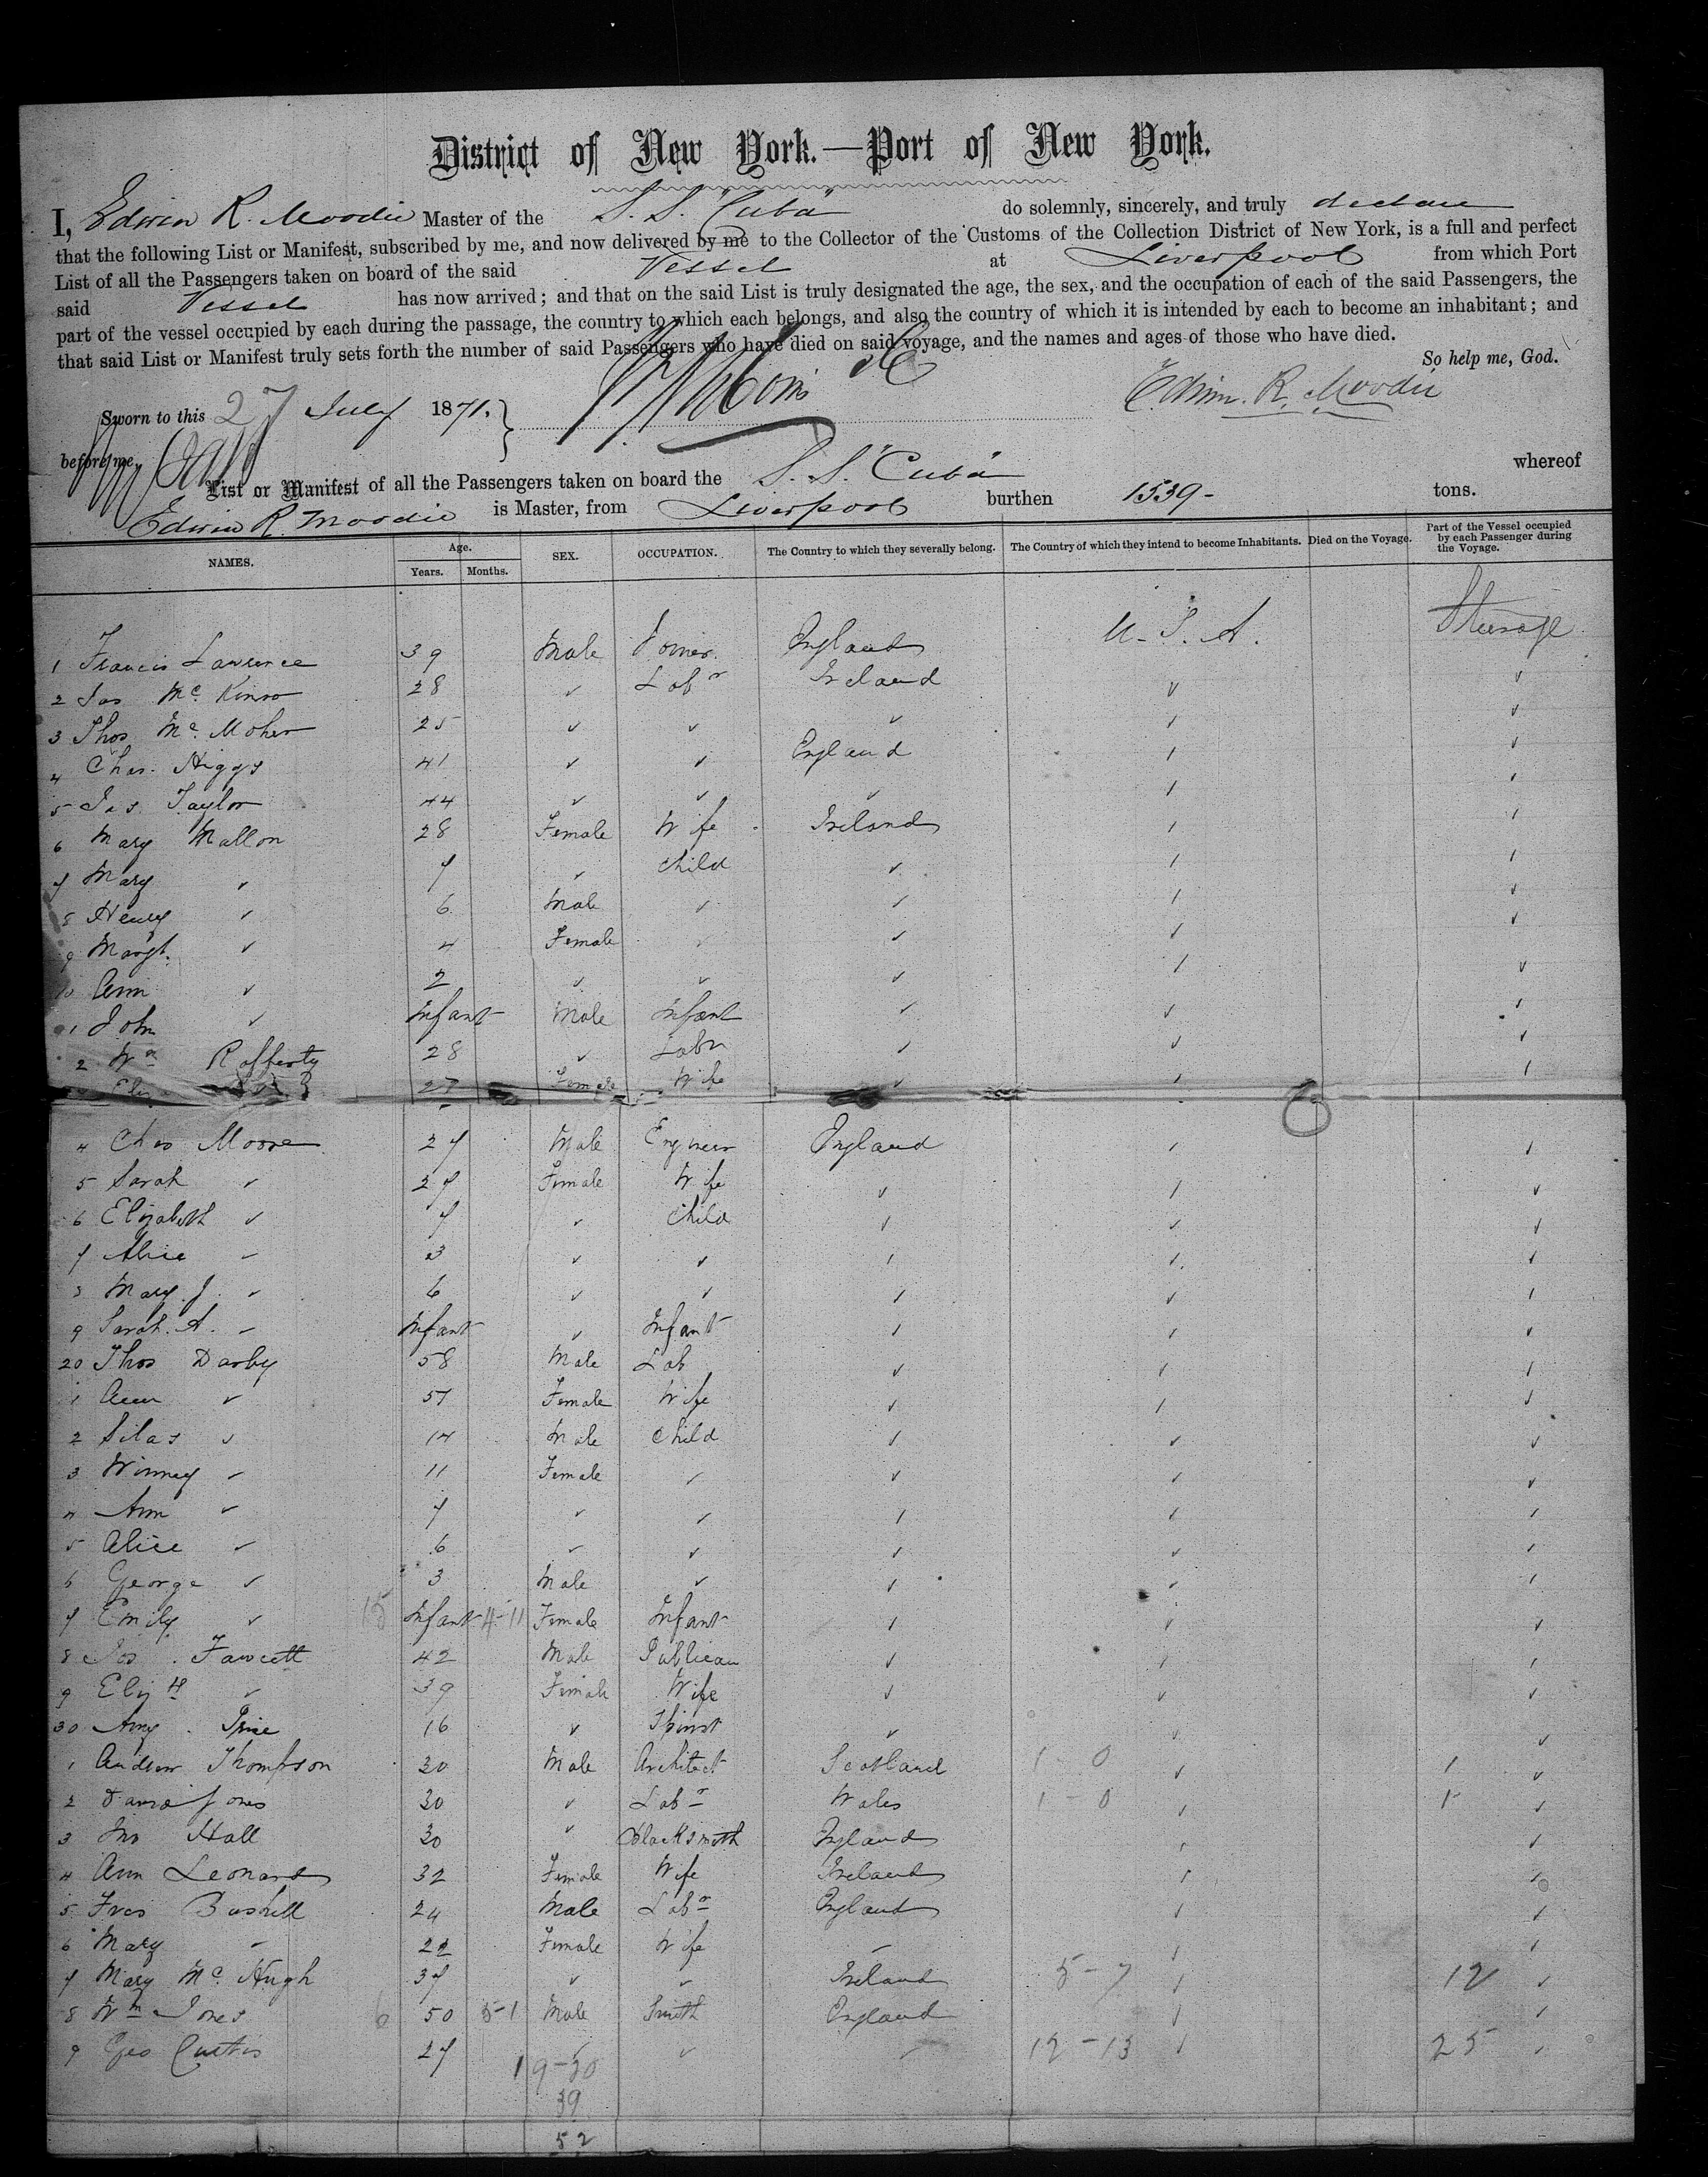 District of New York.—Port of New York.
I, Edwin R. Moodie Master of the S. S. "Cuba" do solemnly, sincerely, and truly declare
that the following List or Manifest, subscribed by me, and now delivered by me to the Collector of the Customs of the Collection District of New York, is a full and perfect
List of all the Passengers taken on board of the said Vessel at Liverpool from which Port
said Vessel has now arrived; and that on the said List is truly designated the age, the sex, and the occupation of each of the said Passengers, the
part of the vessel occupied by each during the passage, the country to which each belongs, and also the country of which it is intended by each to become an inhabitant; and
that said List or Manifest truly sets forth the number of said Passengers who have died on said voyage, and the names and ages of those who have died.
So help me, God.
Sworn to this 27 July 1871. } Edwin. R. Moodie
before me,
List or Manifest of all the Passengers taken on board the S. S. "Cuba" whereof
Edwin R. Moodie is Master, from Liverpool burthen 1539- tons.
NAMES. Age. Years. Months. SEX. OCCUPATION. The Country to which they severally belong. The Country of which they intend to become Inhabitants. Died on the Voyage. Part of the Vessel occupied by each Passenger during the Voyage.
1 Francis Lawrence 39 Male England U. S. A. Steerage
2 Jas Mc. 28 ✓ Labr Ireland ✓ ✓
3 Thos Mc. Moher 25 ✓ ✓ ✓ ✓ ✓
4 Chas. Higgs 41 ✓ ✓ England ✓ ✓
5 Jas. Taylor 44 ✓ ✓ ✓ ✓ ✓
6 Mary Mallon 28 Female Wife Ireland ✓ ✓
7 Mary ✓ 7 ✓ Child ✓ ✓ ✓
8 Henry ✓ 6 Male ✓ ✓ ✓ ✓
9 Margt. ✓ 4 Female ✓ ✓ ✓ ✓
10 Ann ✓ 2 ✓ ✓ ✓ ✓ ✓
1 John ✓ Infant Male Infant ✓ ✓ ✓
2 Wm Rafferty 28 ✓ Labr ✓ ✓ ✓
27 Female Wife ✓ ✓ ✓
4 Chas Moore 27 Male Engineer England ✓ ✓
5 Sarah ✓ 27 Female Wife ✓ ✓ ✓
6 Elizabeth ✓ 7 ✓ Child ✓ ✓ ✓
7 Alice ✓ 3 ✓ ✓ ✓ ✓ ✓
8 Mary. J. ✓ 6 ✓ ✓ ✓ ✓ ✓
9 Sarah. A. ✓ Infant ✓ Infant ✓ ✓ ✓
20 Thos Darby 58 Male Lab ✓ ✓ ✓
1 Ann ✓ 57 Female Wife ✓ ✓ ✓
2 Silas ✓ 14 Male Child ✓ ✓ ✓
3 Winney ✓ 11 Female ✓ ✓ ✓ ✓
4 Ann ✓ 7 ✓ ✓ ✓ ✓ ✓
5 Alice ✓ 6 ✓ ✓ ✓ ✓ ✓
6 George ✓ 3 Male ✓ ✓ ✓ ✓
7 Emily ✓ 15 Infant 4-11 Female Infant ✓ ✓ ✓
8 Jos. Fawcett 42 Male Publican ✓ ✓ ✓
9 Elizth ✓ 39 Female Wife ✓ ✓ ✓
30 Amy. Price 16 ✓ Spinst ✓ ✓ ✓
1 Andrew Thompson 30 Male Architect Scotland 1-0 ✓ 1 ✓
2 David Jones 30 ✓ Labr Wales 1-0 ✓ 1 ✓
3 Jno Hall 30 ✓ Blacksmith England ✓ ✓
4 Ann Leonard 32 Female Wife Ireland ✓ ✓
5 Fras Bushell 24 Male Labr England ✓ ✓
6 Mary ✓ 22 Female Wife ✓ ✓ ✓
7 Mary Mc. Hugh 37 ✓ ✓ Ireland 5-7 ✓ 12 ✓
8 Wm Jones 6 50 5-1 Male Smith England ✓ ✓
9 Geo Curtis 27 ✓ ✓ ✓ 12-13 ✓ 25 ✓
19-20
39
52